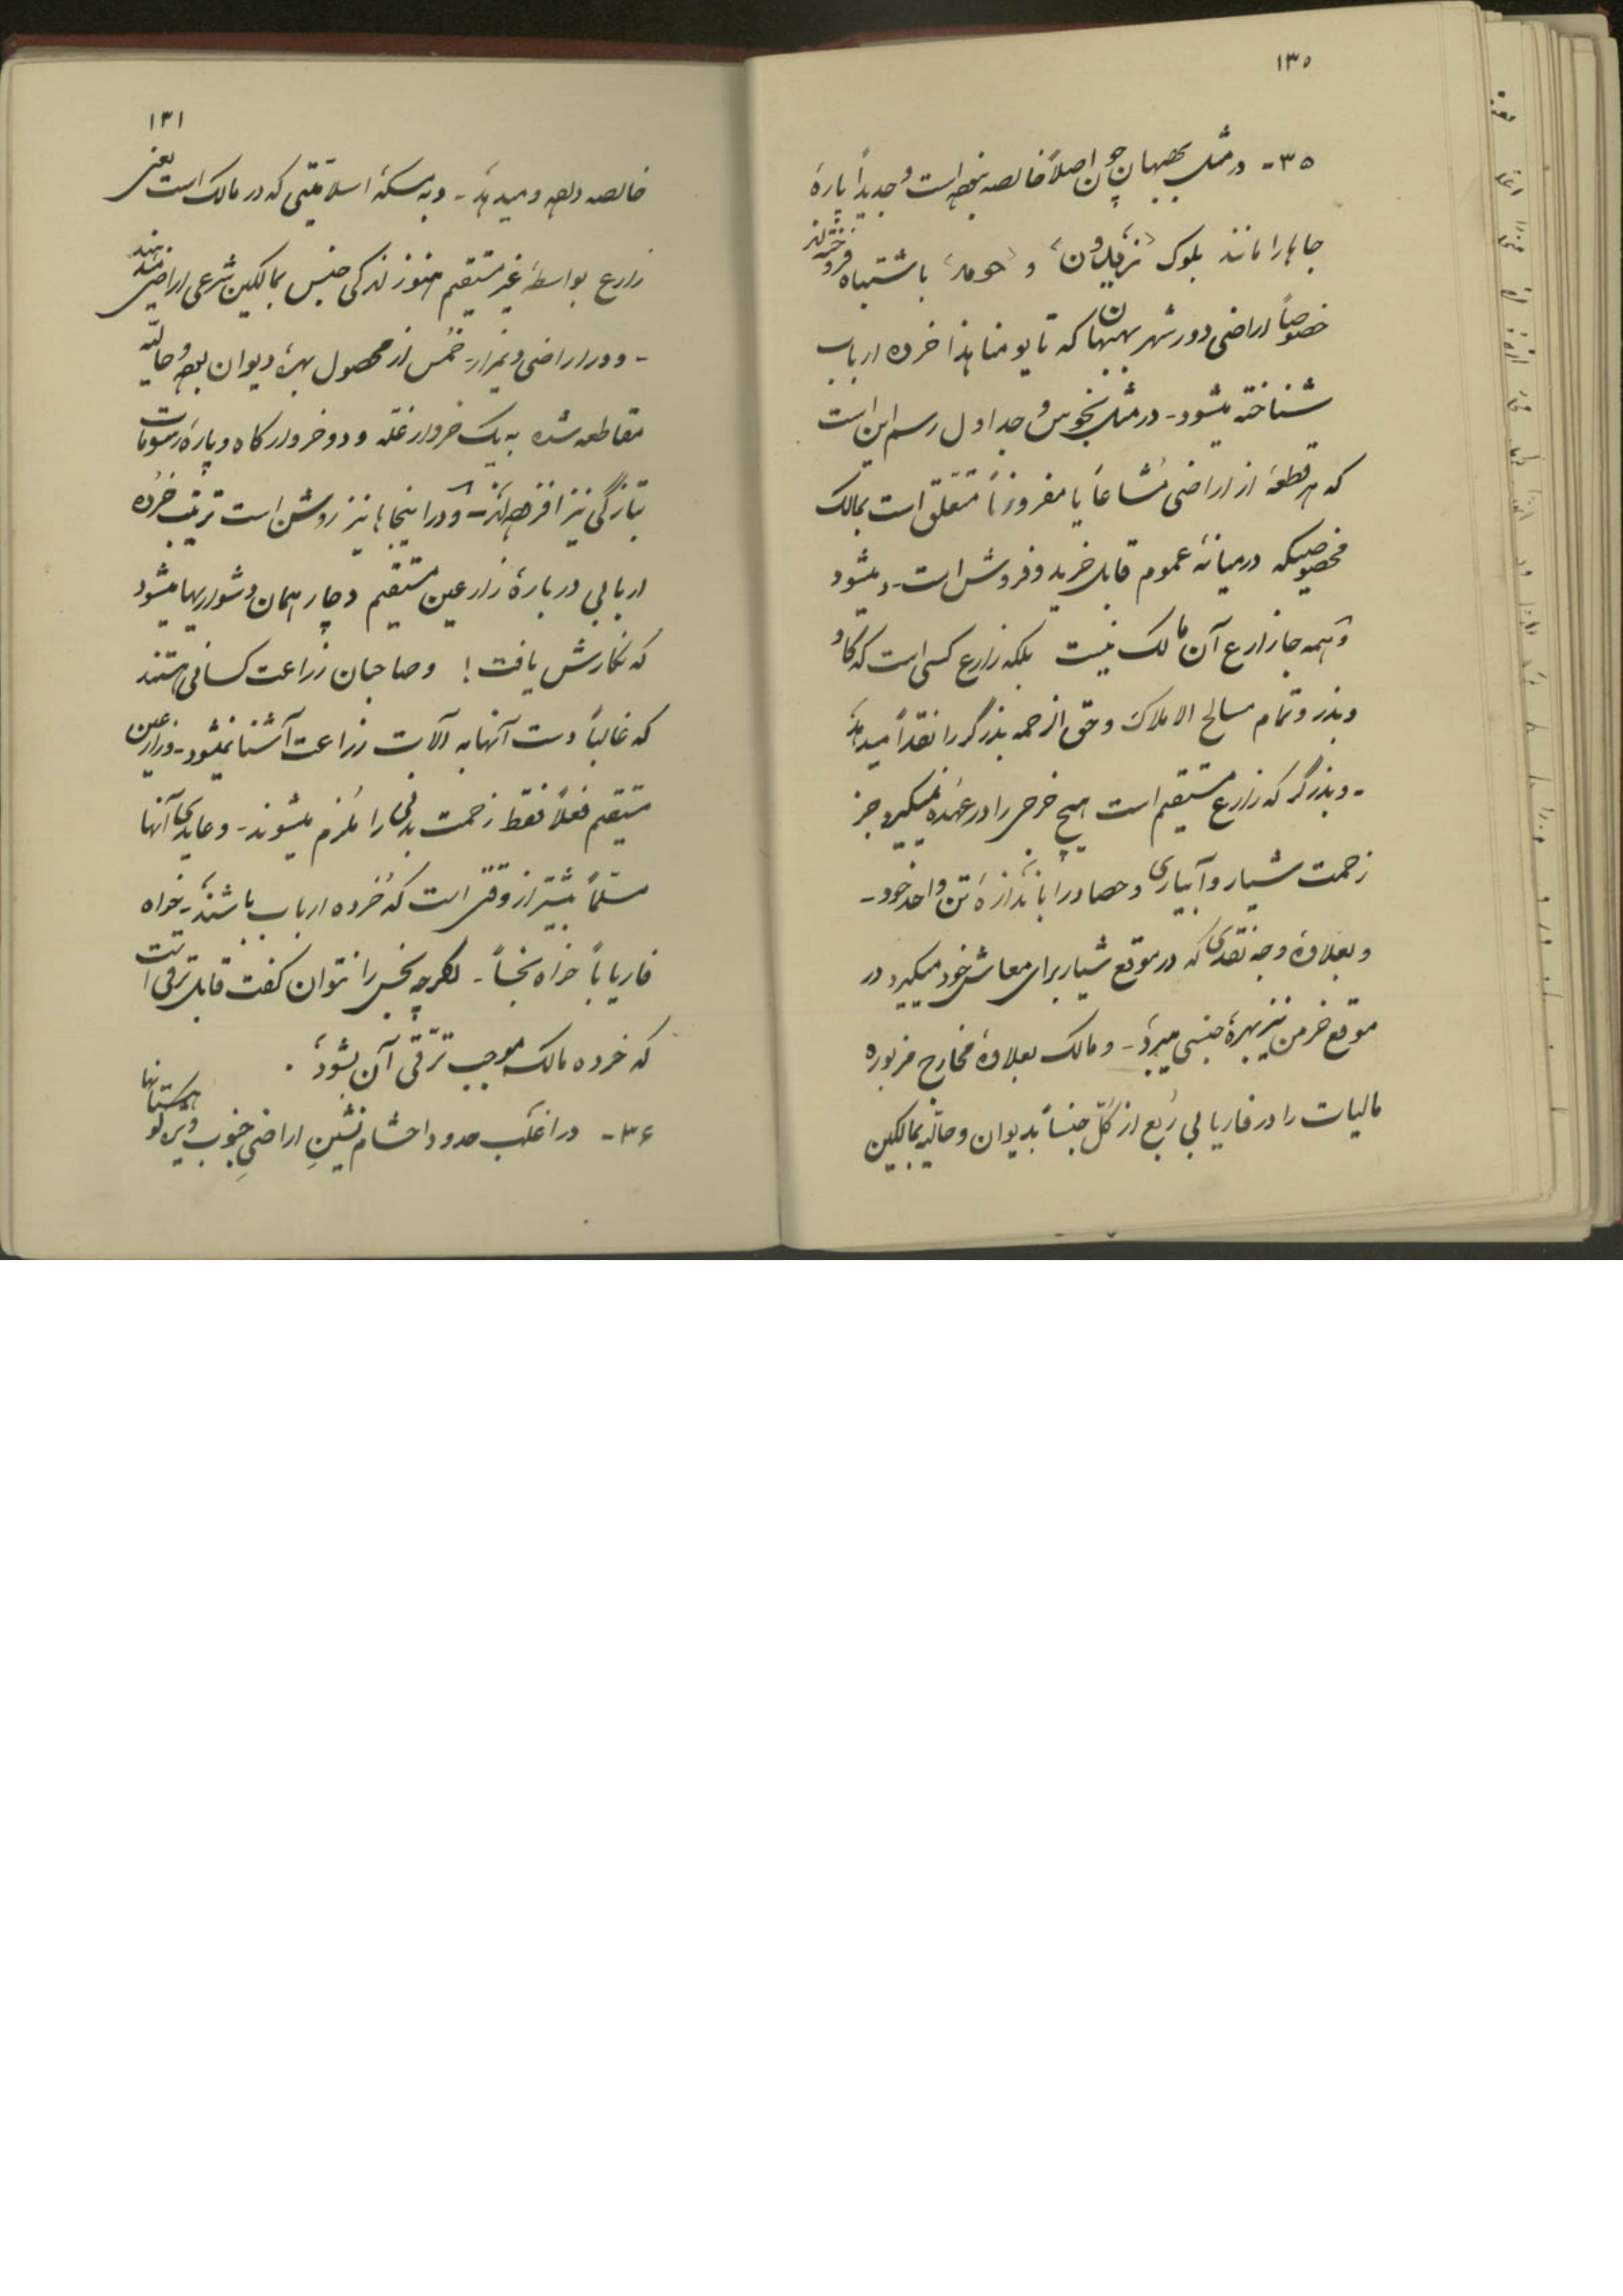 ۱۳۰
۳۵- در مثل بهبهان چون اصلاً خالصه نبوده است و جدیداً پارهٔ
جاها را مانند بلوک «زیدون» و «حومه» باشتباه فروخته‌اند
خصوصاً اراضی دور شهر بهبهان که تا یومنا هذا خرده ارباب
شناخته میشود- در مثل بخوس و جداول رسم این است
که هر قطعهٔ از اراضی مُشاعاً یا مفروزاً متعلق است بمالک
مخصوصیکه در میانهٔ عموم قابل خرید و فروش است- و میشود
و همه جا زارع آن مالک نیست بلکه زارع کسی است که گاو
و بذر و تمام مصالح الاملاک و حق الزحمه بذرگر را نقداً میدهد
- و بذرگر که زارع مستقیم است هیچ خرجی را در عهده نمیگیرد جز
زحمت شیار و آبیاری و حصاد را باندازهٔ تن واحد خود-
و بعلاوهٔ وجه نقدی که در موقع شیار برای معاش خود میگیرد در
موقع خرمن نیز بهرهٔ جنسی میبرد- و مالک بعلاوهٔ مخارج مزبوره
مالیات را در فاریابی رُبع از کُلّ جنساً بدیوان و حالیه بمالکین
۱۳۱
خالصه داده و میدهد- و به مسکهٔ اسلامیّتی که در مالک است یعنی
زارع بواسطهٔ غیر مستقیم هنوز اندکی جنس بمالکین شرعی اراضی میدهند
- و در اراضی دیمزار- خُمس از محصول بهرهٔ دیوان بوده و حالیّه
مقاطعه شده به یک خروار غلّه و دو خروار کاه و پارهٔ رسومات
بتازگی نیز افزوده‌اند- و در اینجاها نیز روشن است ترتیب خُرده
اربابی دربارهٔ زارعین مستقیم دچار همان دشواریها میشود
که نگارش یافت! و صاحبان زراعت کسانی هستند
که غالباً دست آنها به آلات زراعت آشنا نمیشود- و زارعین
مستقیم فعلاً فقط زحمت بدنی را مُلزم میشوند- و عایدی آنها
مسلّماً بیشتر از وقتی است که خُرده ارباب باشند- خواه
فاریاباً خواه بخساً- اگرچه بخس را نتوان گفت قابل ترقی است
که خرده مالک موجب ترقّی آن بشود.
۳۶- در اغلب حدود احشام نشینِ اراضیِ جنوب ویژه کوهستانها